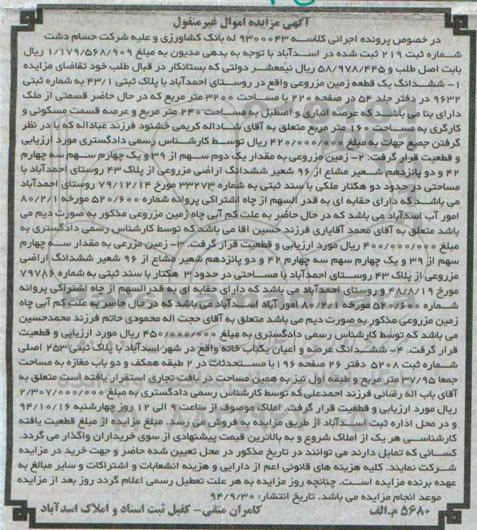 آگهی مزایده اموال غیرمنقول
در خصوص پرونده اجرائی کلاسه ۹۳۰۰۰۴۳ له بانک کشاورزی و علیه شرکت حسام دشت
شماره ثبت ۲۱۹ ثبت شده در اسدآباد با توجه به بدهی مدیون به مبلغ ۱/۱۷۹/۵۶۸/۹۰۹ ریال
بابت اصل طلب و ۵۸/۹۷۸/۴۴۵ ریال نیمعشر دولتی که بستانکار در قبال طلب خود تقاضای مزایده
۱- ششدانگ یک قطعه زمین مزروعی واقع در روستای احمدآباد با پلاک ثبتی ۴۳/۱ به شماره ثبتی
۹۶۳۲ در دفتر جلد ۵۴ در صفحه ۲۲۰ با مساحت ۳۲۰۰ متر مربع که در حال حاضر قسمتی از ملک
دارای بنا می باشد که عرصه انباری و اصطبل به مساحت ۲۴۰ متر مربع و عرصه قسمت مسکونی و
کارگری به مساحت ۱۶۰ متر مربع متعلق به آقای شاداله کریمی خشنود فرزند عباداله که با در نظر
گرفتن جمیع جهات به مبلغ ۴۲۰/۰۰۰/۰۰۰ ریال توسط کارشناس رسمی دادگستری مورد ارزیابی
و قطعیت قرار گرفت. ۲- زمین مزروعی به مقدار یک دوم سهم از ۳۹ و یک چهارم سهم سه چهارم
۴۲ و دو پانزدهم شعیر مشاع از ۹۶ شعیر ششدانگ اراضی مزروعی از پلاک ۴۳ روستای احمدآباد با
مساحتی در حدود دو هکتار ملکی با سند ثبتی به شماره ۳۳۲۷۳ مورخ ۷۹/۱۲/۱۴ روستای احمدآباد
می باشد که دارای حقابه ای به قدر السهم از چاه اشتراکی پروانه شماره ۵۲۰/۶۰۰ مورخه ۸۰/۲/۱
امور آب اسدآباد می باشد که در حال حاضر به علت کم آبی چاه زمین مزروعی مذکور به صورت دیم می
باشد متعلق به آقای محمد آقایاری فرزند حسین آقا می باشد که توسط کارشناس رسمی دادگستری به
مبلغ ۴۰۰/۰۰۰/۰۰۰ ریال مورد ارزیابی و قطعیت قرار گرفت. ۳- زمین مزروعی به مقدار سه چهارم
سهم از ۳۹ و یک چهارم سهم سه چهارم ۴۲ و دو پانزدهم شعیر مشاع از ۹۶ شعیر ششدانگ اراضی
مزروعی از پلاک ۴۳ روستای احمدآباد با مساحتی در حدود ۳ هکتار با سند ثبتی به شماره ۷۹۷۸۶
مورخ ۴۸/۸/۱۹ و روستای احمدآباد می باشد که دارای حقابه ای به قدرالسهم از چاه اشتراکی پروانه
شماره ۵۲۰/۶۰۰ مورخه ۸۰/۲/۱ امور آباد اسدآباد می باشد که در حال حاضر به علت کم آبی چاه
زمین مزروعی مذکور به صورت دیم می باشد متعلق به آقای حجت اله محمودی خاتم فرزند محمدحسین
می باشد که توسط کارشناس رسمی دادگستری به مبلغ ۴۵۰/۰۰۰/۰۰۰ ریال مورد ارزیابی و قطعیت
قرار گرفت. ۴- ششدانگ عرصه و اعیان یکباب خانه واقع در شهر اسدآباد با پلاک ثبتی ۲۵۳ اصلی
شماره ثبت ۵۲۰۸ دفتر ۲۶ صفحه ۱۹۶ با مستحدثات در ۲ طبقه همکف و دو باب مغازه به مساحت
جمعا ۳۷/۹۵ متر مربع و طبقه اول نیز به همین مساحت در بافت تجاری استقرار یافته است متعلق به
آقای باب اله رضائی فرزند احمدعلی که توسط کارشناس رسمی دادگستری به مبلغ ۲/۳۰۷/۰۰۰/۰۰۰
ریال مورد ارزیابی و قطعیت قرار گرفت. املاک موصوف از ساعت ۹ الی ۱۲ روز چهارشنبه ۹۴/۱۰/۱۶
و در محل اداره ثبت اسدآباد از طریق مزایده به فروش می رسد. مبلغ مزایده از مبلغ قطعیت یافته
کارشناسی هر یک از املاک شروع و به بالاترین قیمت پیشنهادی از سوی خریداران واگذار می گردد.
کسانی که تمایل دارند می توانند در تاریخ مذکور در محل تعیین شده حاضر و جهت خرید در مزایده
شرکت نمایند. کلیه هزینه های قانونی اعم از دارایی و هزینه انشعابات و اشتراکات و سایر مبالغ به
عهده برنده مزایده است. چنانچه روز مزایده به هر علت تعطیل رسمی اعلام گردد روز بعد از مزایده
موعد انجام مزایده می باشد. تاریخ انتشار: ۹۴/۹/۳۰
۵۶۸۰ م.الف کامران متقی- کفیل ثبت اسناد و املاک اسدآباد